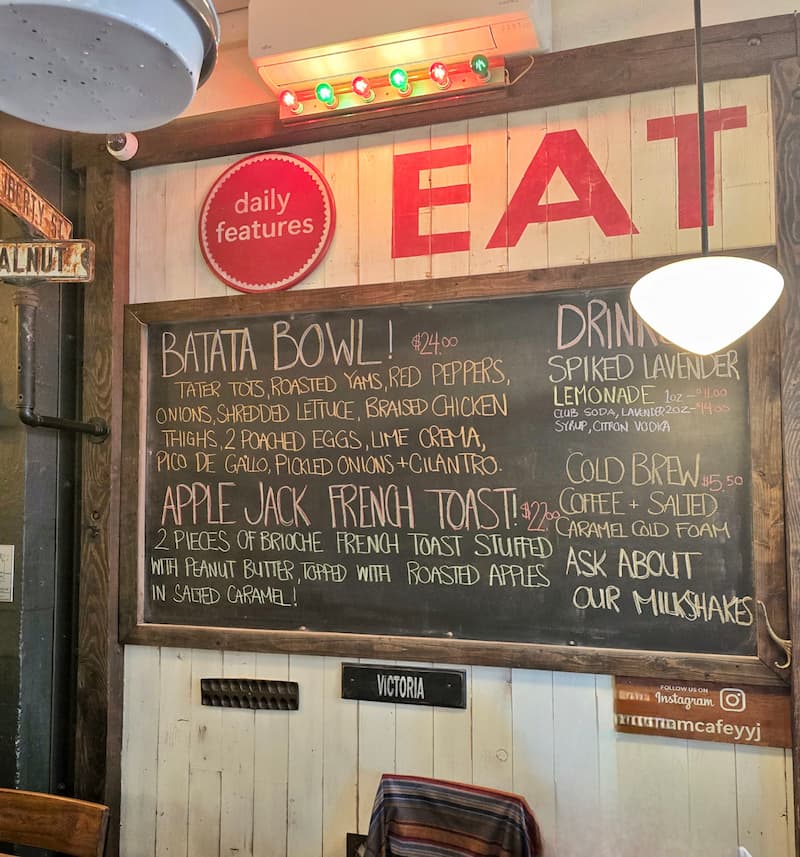 EAT
daily
features
BATATA BOWL! $24.00
TATER TOTS, ROASTED YAMS, RED PEPPERS,
ONIONS, SHREDDED LETTUCE, BRAISED CHICKEN
THIGHS, 2 POACHED EGGS, LIME CREMA,
PICO DE GALLO, PICKLED ONIONS + CILANTRO.
APPLE JACK FRENCH TOAST! $22.00
2 PIECES OF BRIOCHE FRENCH TOAST STUFFED
WITH PEANUT BUTTER, TOPPED WITH ROASTED APPLES
IN SALTED CARAMEL!
SPIKED LAVENDER
LEMONADE 1oz -$11.00
CLUB SODA, LAVENDER 2oz -$14.00
SYRUP, CITRON VODKA
COLD BREW $5.50
COFFEE + SALTED
CARAMEL COLD FOAM
ASK ABOUT
OUR MILKSHAKES
VICTORIA
FOLLOW US ON
Instagram